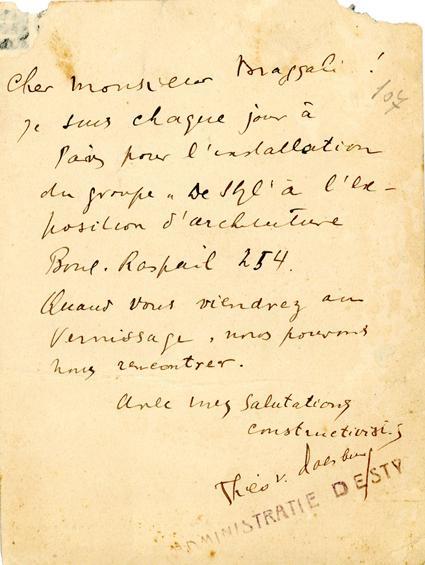 Cher Monsieur Braggali !
107
Je suis chaque jour à
Paris pour l'installation
du groupe „ De Styl" à l'ex-
position d'architecture
Boul. Raspail 254.
Quand vous viendrez au
Vernissage, nous pouvons
nous rencontrer.
Avec mes Salutations
constructivists
Théo v. Doesburg
ADMINISTRATIE DE STY